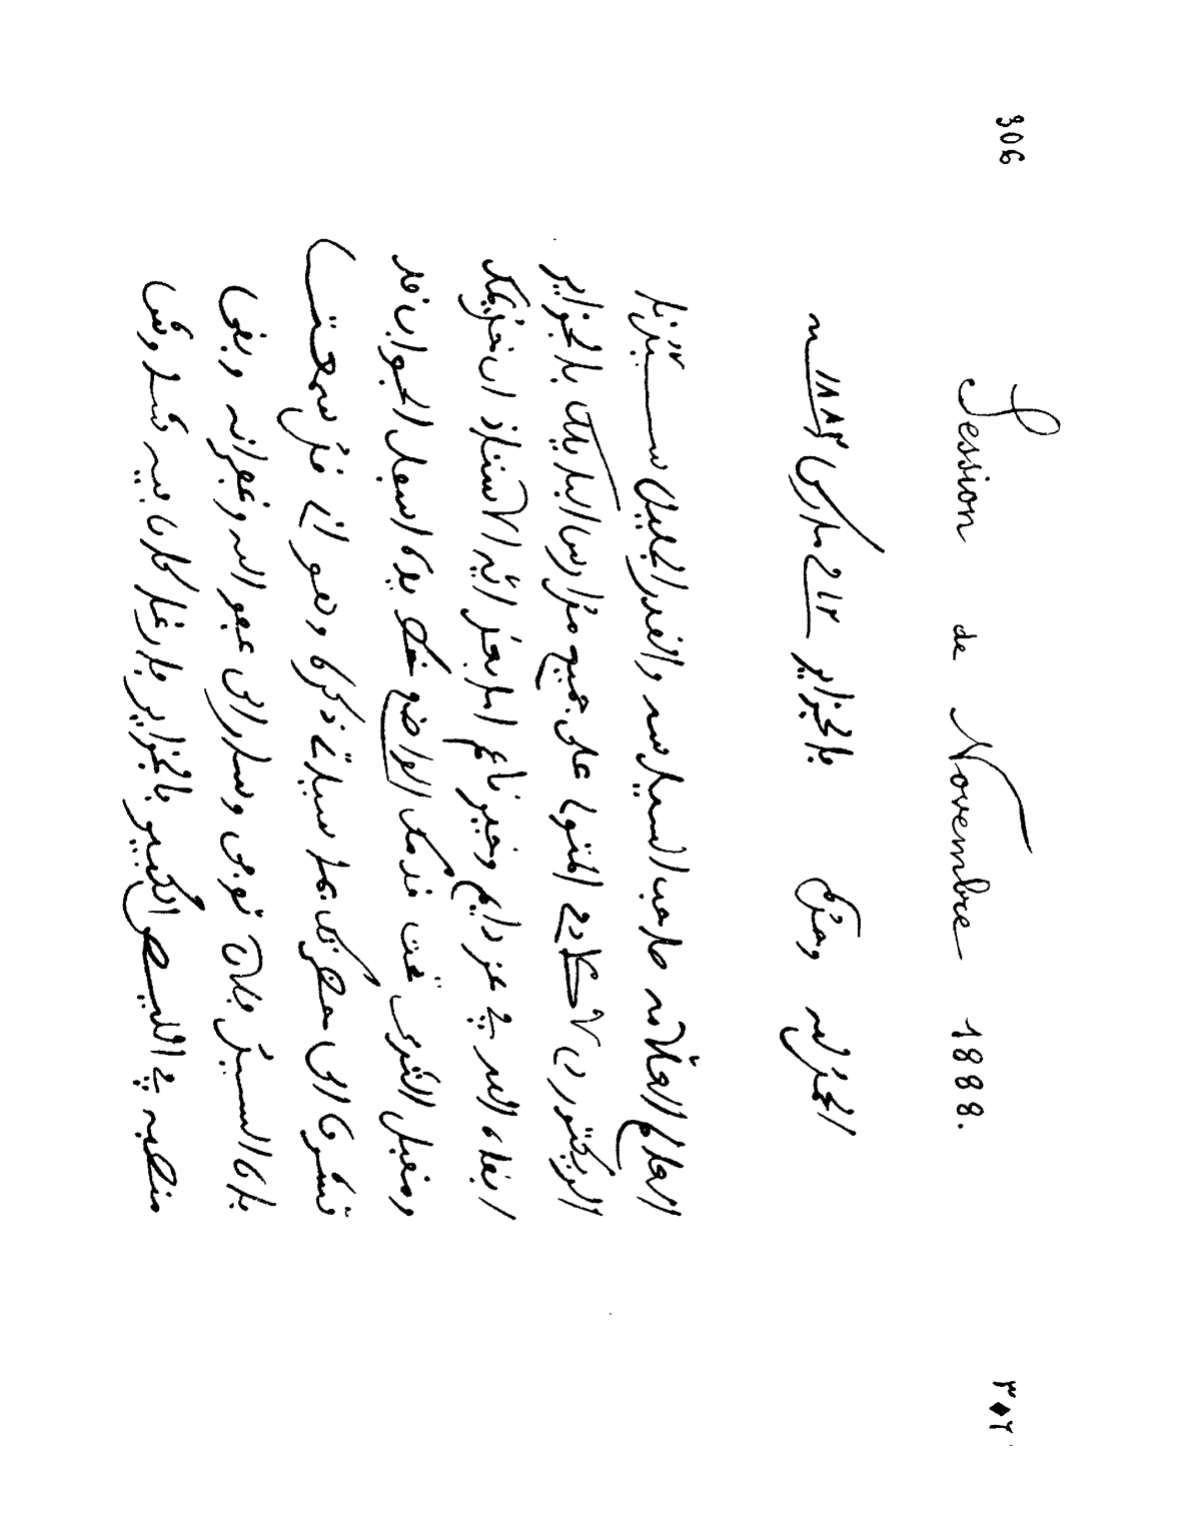 306 ٣٠٦
Session de Novembre 1888.
الحمد لله وحده بالجزاير مارس ١٨٨٢ سنه
العالم العلامه صاحب السياده والقدر الجليل سيدنا
الريكتور دي لاكادمي المتولي على جميع مدارس بالجزاير
ابقاه الله في عز دايم وخير ناعم اما بعد ايها الاستاذ ان خديمك
ومقبل الثرى تحت قدمك الواضع خطه يده اسفل الجواب قد
الى حضرتك ذكره وهو اني قد سمعت
بان السيد فلان توفى وسار الى عفو الله وغفرانه وبقى
منصبه في الليسي الكبير بالجزاير فارغا كان فيه شاوش